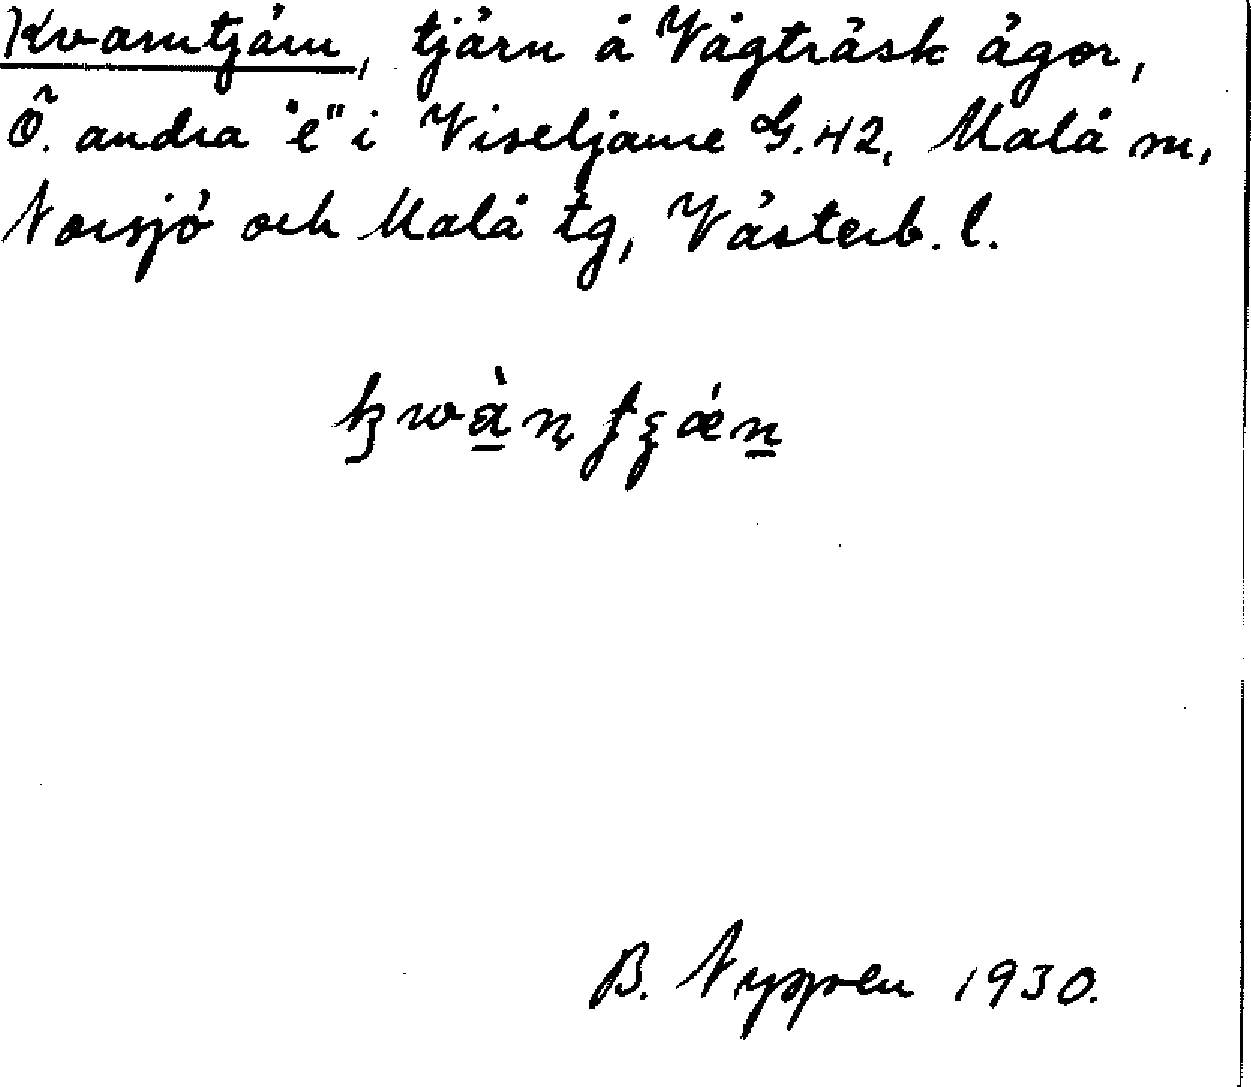 Kvarntjärn, tjärn å Vägträsk ägor,
Ö. andra "e" i Viseljaure G. 42, Malå sn,
Norsjö och Malå tg, Västerb. l.
B. Nyppren 1930.